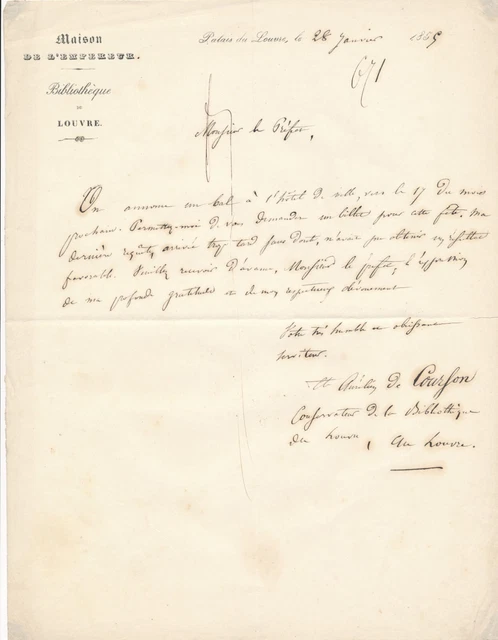 Maison
DE L'EMPEREUR.
Bibliothèque
DU
LOUVRE.
Palais du Louvre, le 28 Janvier 1865
671
Monsieur le Préfet,
On annonce un bal à l'hôtel de ville, vers le 17 du mois
prochain. Permettez-moi de vous demander un billet pour cette fête, ma
dernière requête, arrivée trop tard sans doute, n'ayant pu obtenir un résultat
favorable. Veuillez recevoir d'avance, Monsieur le préfet, l'expression
de ma profonde gratitude et de mon respectueux dévouement
Votre très humble et obéissant
serviteur.
Aurélien de Courson
Conservateur de la Bibliothèque
du Louvre, au Louvre.